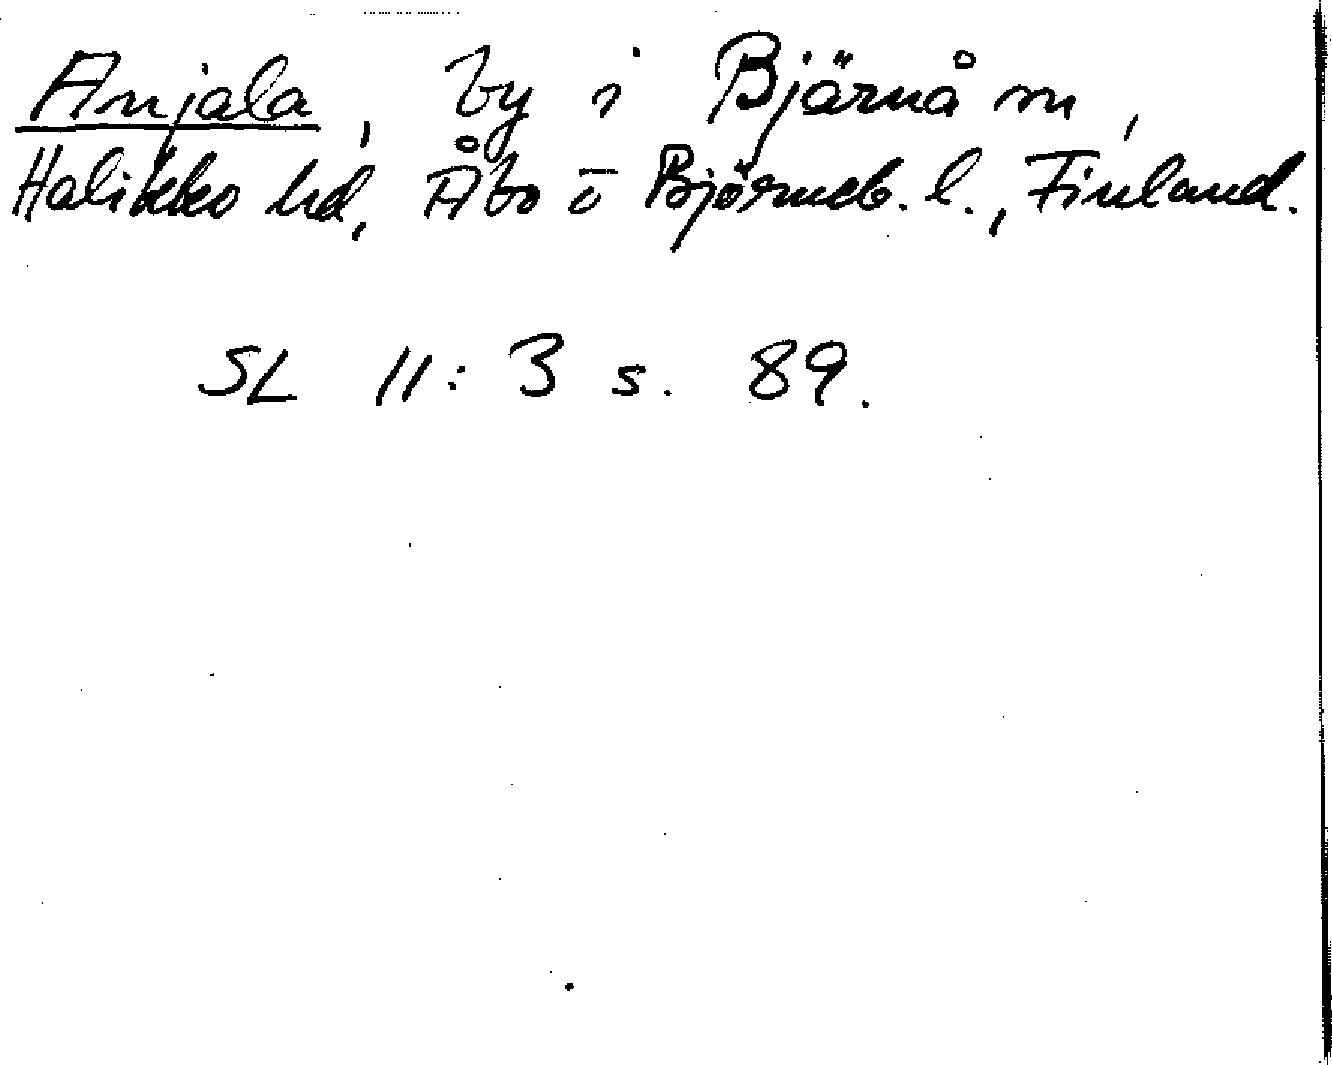 Anjala, by i Bjärnå sn,
Halikko hd, Åbo o Björneb. l., Finland.
SL 11:3 s. 89.